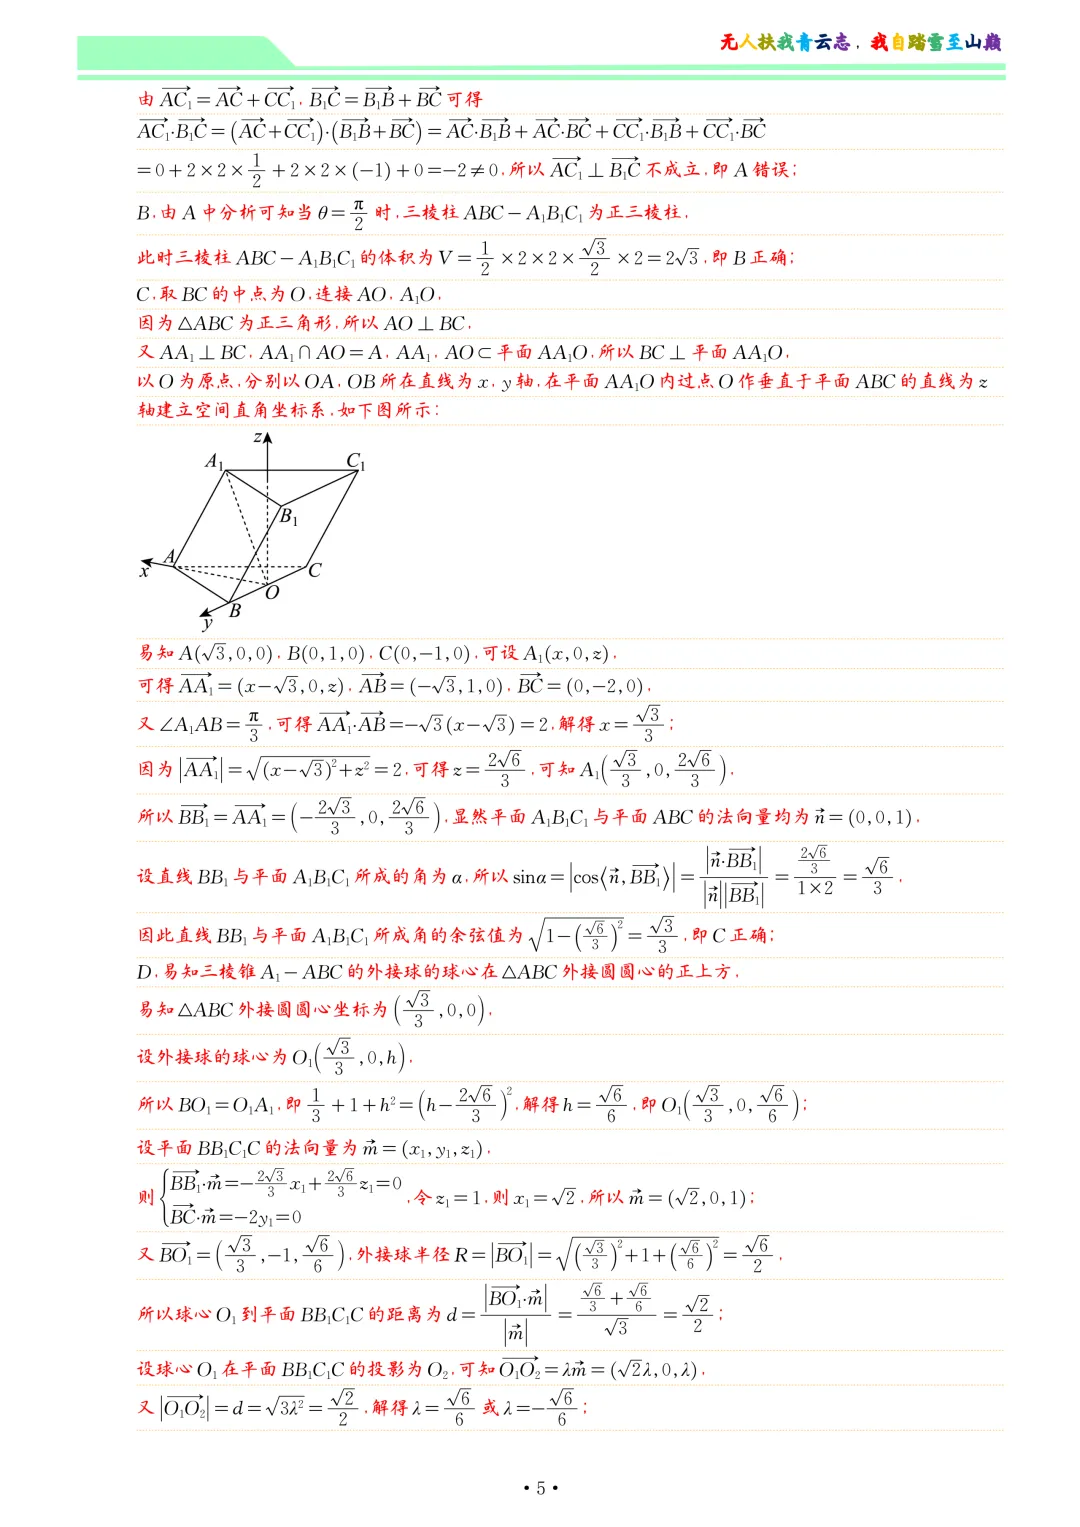 无人扶我青云志，我自踏雪至山巅
由 $\overrightarrow{AC_1}=\overrightarrow{AC}+\overrightarrow{CC_1}$, $\overrightarrow{B_1C}=\overrightarrow{B_1B}+\overrightarrow{BC}$ 可得
$\overrightarrow{AC_1}\cdot\overrightarrow{B_1C}=(\overrightarrow{AC}+\overrightarrow{CC_1})\cdot(\overrightarrow{B_1B}+\overrightarrow{BC})=\overrightarrow{AC}\cdot\overrightarrow{B_1B}+\overrightarrow{AC}\cdot\overrightarrow{BC}+\overrightarrow{CC_1}\cdot\overrightarrow{B_1B}+\overrightarrow{CC_1}\cdot\overrightarrow{BC}$
$=0+2\times2\times\frac{1}{2}+2\times2\times(-1)+0=-2\neq0$, 所以 $\overrightarrow{AC_1}\perp\overrightarrow{B_1C}$ 不成立, 即 A 错误;
B, 由 A 中分析可知当 $\theta=\frac{\pi}{2}$ 时, 三棱柱 $ABC-A_1B_1C_1$ 为正三棱柱,
此时三棱柱 $ABC-A_1B_1C_1$ 的体积为 $V=\frac{1}{2}\times2\times2\times\frac{\sqrt{3}}{2}\times2=2\sqrt{3}$, 即 B 正确;
C, 取 BC 的中点为 O, 连接 AO, $A_1O$,
因为 △ABC 为正三角形, 所以 $AO\perp BC$,
又 $AA_1\perp BC$, $AA_1\cap AO=A$, $AA_1$, $AO\subset$ 平面 $AA_1O$, 所以 $BC\perp$ 平面 $AA_1O$,
以 O 为原点, 分别以 OA, OB 所在直线为 x, y 轴, 在平面 $AA_1O$ 内过点 O 作垂直于平面 ABC 的直线为 z
轴建立空间直角坐标系, 如下图所示:
z
$A_1$ $C_1$
$B_1$
A
x C
O
B
y
易知 $A(\sqrt{3},0,0)$, $B(0,1,0)$, $C(0,-1,0)$, 可设 $A_1(x,0,z)$,
可得 $\overrightarrow{AA_1}=(x-\sqrt{3},0,z)$, $\overrightarrow{AB}=(-\sqrt{3},1,0)$, $\overrightarrow{BC}=(0,-2,0)$,
又 $\angle A_1AB=\frac{\pi}{3}$, 可得 $\overrightarrow{AA_1}\cdot\overrightarrow{AB}=-\sqrt{3}(x-\sqrt{3})=2$, 解得 $x=\frac{\sqrt{3}}{3}$;
因为 $|\overrightarrow{AA_1}|=\sqrt{(x-\sqrt{3})^2+z^2}=2$, 可得 $z=\frac{2\sqrt{6}}{3}$, 可知 $A_1\left(\frac{\sqrt{3}}{3},0,\frac{2\sqrt{6}}{3}\right)$,
所以 $\overrightarrow{BB_1}=\overrightarrow{AA_1}=\left(-\frac{2\sqrt{3}}{3},0,\frac{2\sqrt{6}}{3}\right)$, 显然平面 $A_1B_1C_1$ 与平面 ABC 的法向量均为 $\vec{n}=(0,0,1)$,
设直线 $BB_1$ 与平面 $A_1B_1C_1$ 所成的角为 α, 所以 $\sin\alpha=|\cos\langle\vec{n},\overrightarrow{BB_1}\rangle|=\frac{|\vec{n}\cdot\overrightarrow{BB_1}|}{|\vec{n}||\overrightarrow{BB_1}|}=\frac{\frac{2\sqrt{6}}{3}}{1\times2}=\frac{\sqrt{6}}{3}$,
因此直线 $BB_1$ 与平面 $A_1B_1C_1$ 所成角的余弦值为 $\sqrt{1-\left(\frac{\sqrt{6}}{3}\right)^2}=\frac{\sqrt{3}}{3}$, 即 C 正确;
D, 易知三棱锥 $A_1-ABC$ 的外接球的球心在 △ABC 外接圆圆心的正上方,
易知 △ABC 外接圆圆心坐标为 $\left(\frac{\sqrt{3}}{3},0,0\right)$,
设外接球的球心为 $O_1\left(\frac{\sqrt{3}}{3},0,h\right)$,
所以 $BO_1=O_1A_1$, 即 $\frac{1}{3}+1+h^2=\left(h-\frac{2\sqrt{6}}{3}\right)^2$, 解得 $h=\frac{\sqrt{6}}{6}$, 即 $O_1\left(\frac{\sqrt{3}}{3},0,\frac{\sqrt{6}}{6}\right)$;
设平面 $BB_1C_1C$ 的法向量为 $\vec{m}=(x_1,y_1,z_1)$,
则 $\begin{cases}\overrightarrow{BB_1}\cdot\vec{m}=-\frac{2\sqrt{3}}{3}x_1+\frac{2\sqrt{6}}{3}z_1=0\\\overrightarrow{BC}\cdot\vec{m}=-2y_1=0\end{cases}$, 令 $z_1=1$, 则 $x_1=\sqrt{2}$, 所以 $\vec{m}=(\sqrt{2},0,1)$;
又 $\overrightarrow{BO_1}=\left(\frac{\sqrt{3}}{3},-1,\frac{\sqrt{6}}{6}\right)$, 外接球半径 $R=|\overrightarrow{BO_1}|=\sqrt{\left(\frac{\sqrt{3}}{3}\right)^2+1+\left(\frac{\sqrt{6}}{6}\right)^2}=\frac{\sqrt{6}}{2}$,
所以球心 $O_1$ 到平面 $BB_1C_1C$ 的距离为 $d=\frac{|\overrightarrow{BO_1}\cdot\vec{m}|}{|\vec{m}|}=\frac{\frac{\sqrt{6}}{3}+\frac{\sqrt{6}}{6}}{\sqrt{3}}=\frac{\sqrt{2}}{2}$;
设球心 $O_1$ 在平面 $BB_1C_1C$ 的投影为 $O_2$, 可知 $\overrightarrow{O_1O_2}=\lambda\vec{m}=(\sqrt{2}\lambda,0,\lambda)$,
又 $|\overrightarrow{O_1O_2}|=d=\sqrt{3\lambda^2}=\frac{\sqrt{2}}{2}$, 解得 $\lambda=\frac{\sqrt{6}}{6}$ 或 $\lambda=-\frac{\sqrt{6}}{6}$;
· 5 ·